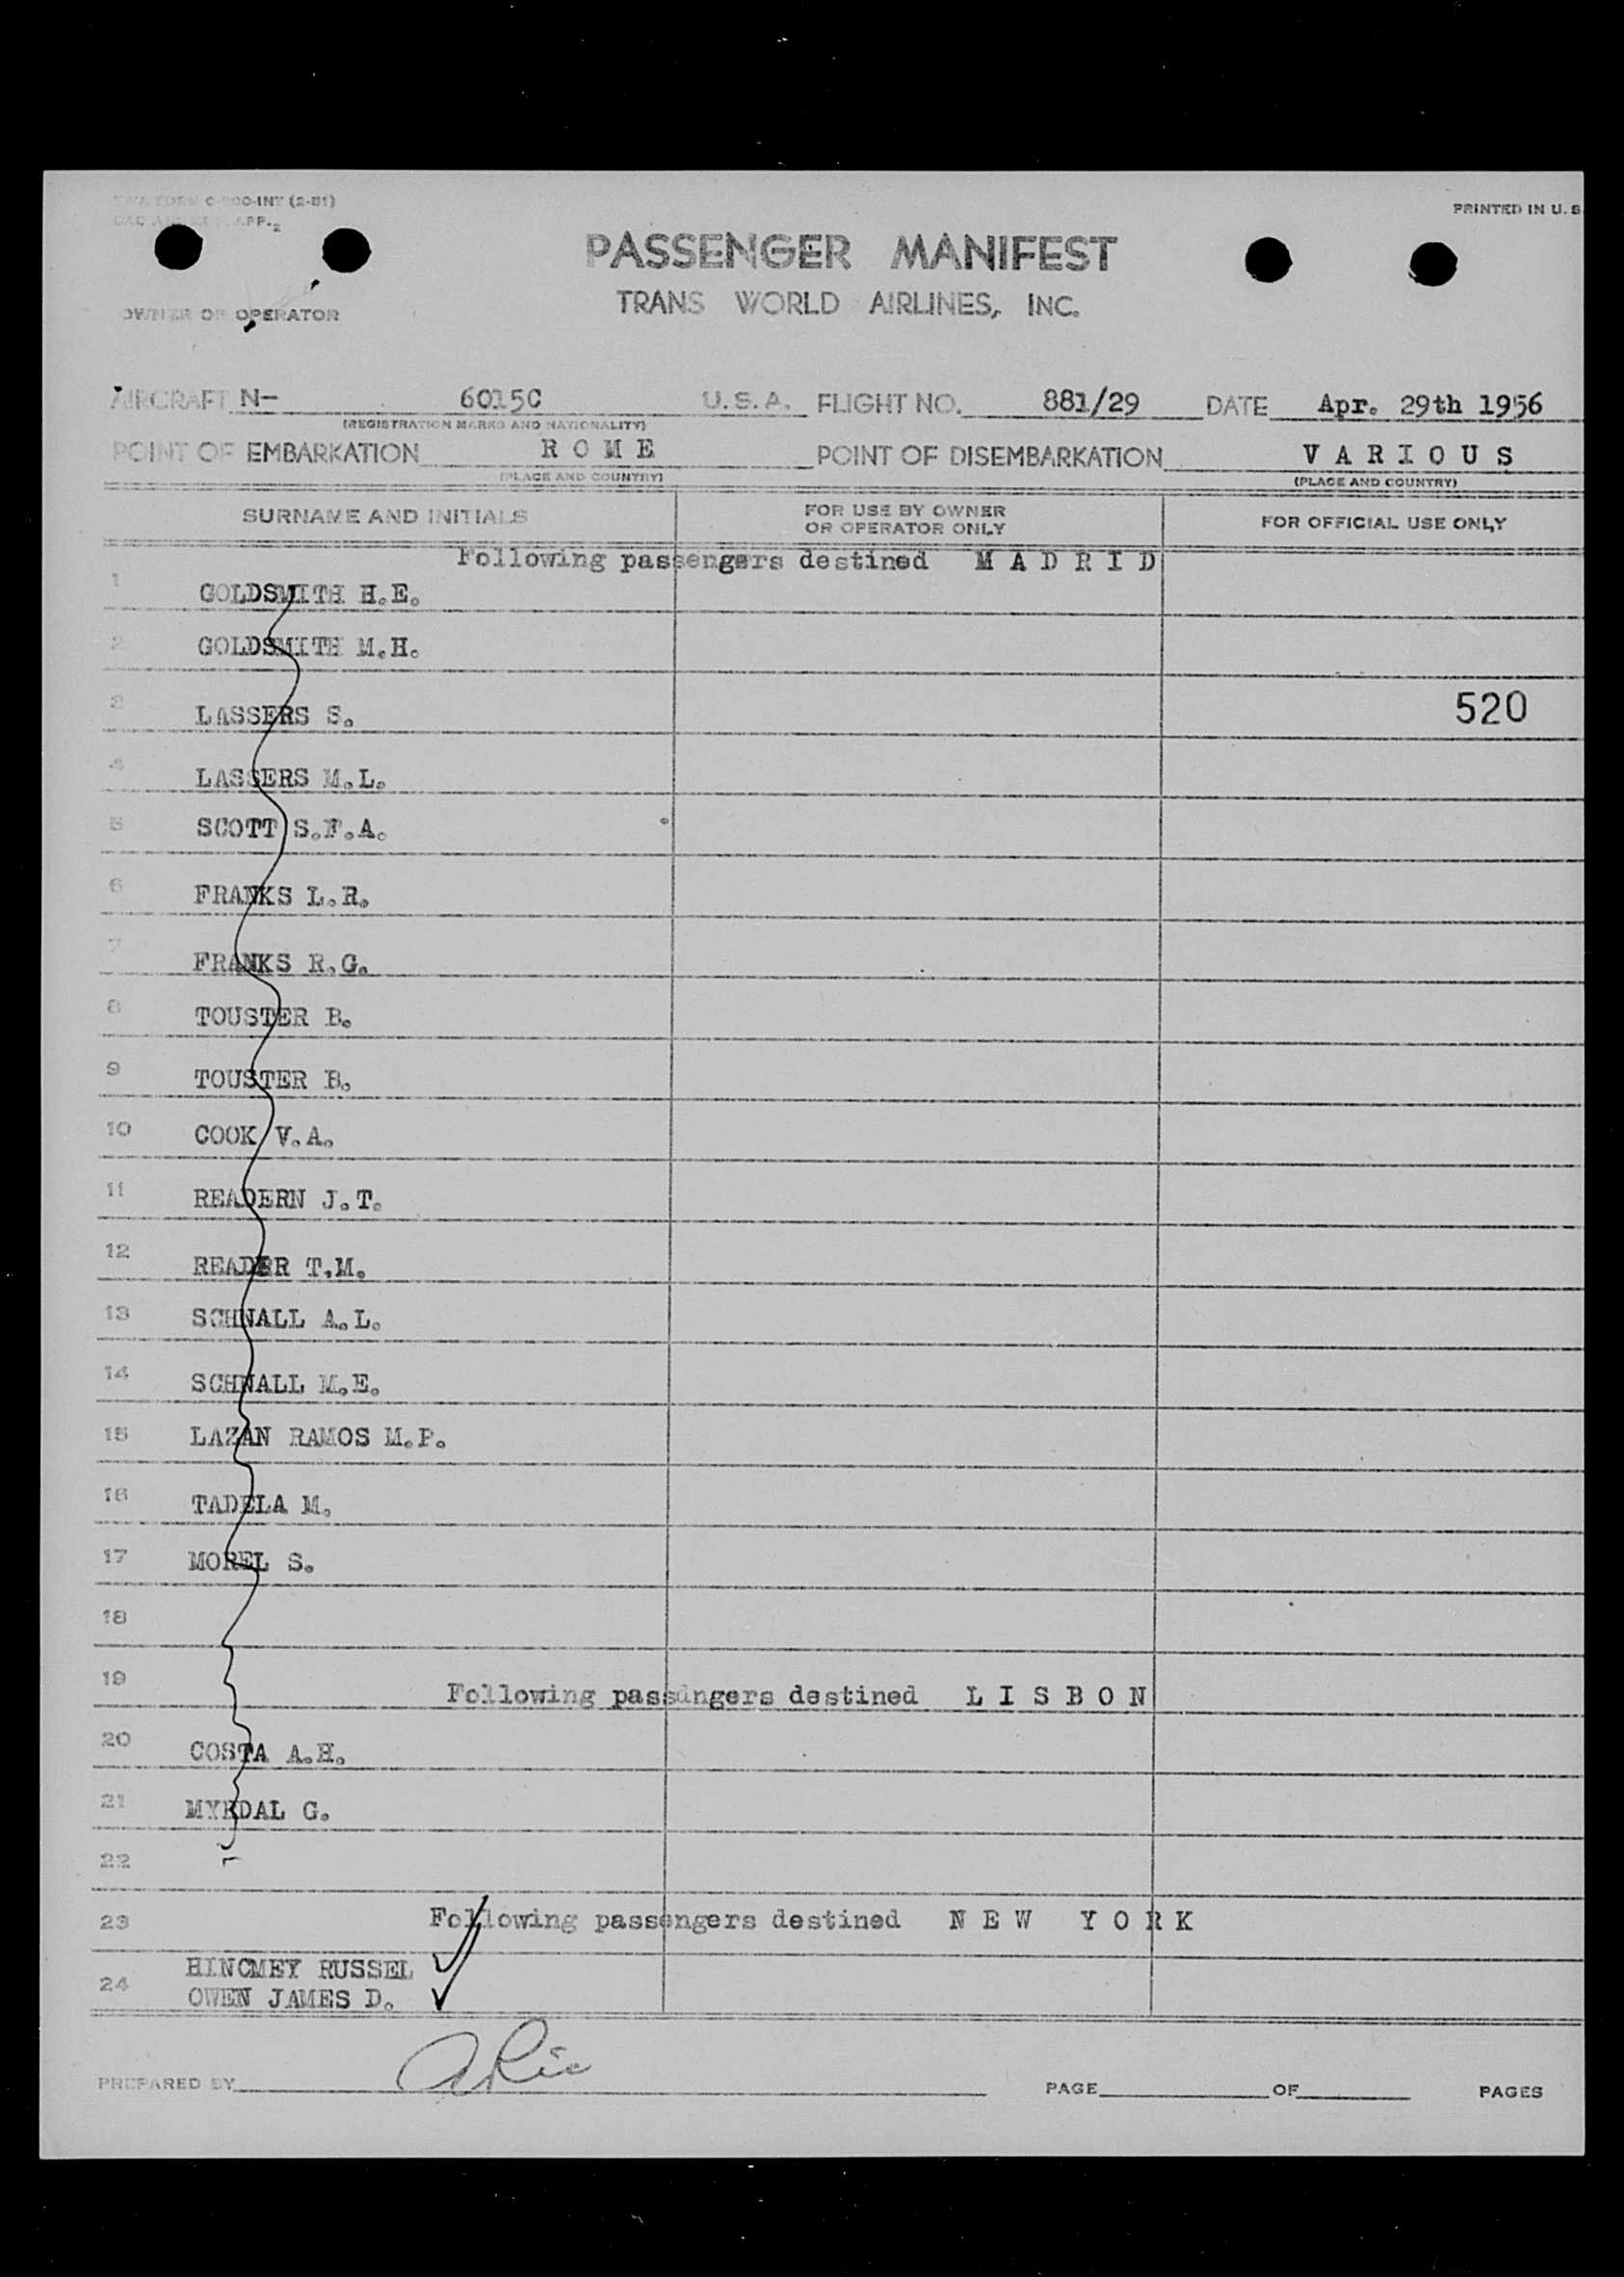 C-900-INT (2-51)
PRINTED IN U. S
APP. 2
PASSENGER MANIFEST
TRANS WORLD AIRLINES, INC.
OWNER OR OPERATOR
AIRCRAFT N- 6015C U.S.A. FLIGHT NO. 881/29 DATE Apr. 29th 1956
(REGISTRATION MARKS AND NATIONALITY)
POINT OF EMBARKATION R O M E POINT OF DISEMBARKATION V A R I O U S
(PLACE AND COUNTRY) (PLACE AND COUNTRY)
SURNAME AND INITIALS FOR USE BY OWNER OR OPERATOR ONLY FOR OFFICIAL USE ONLY
Following passengers destined M A D R I D
1 GOLDSMITH H.E.
2 GOLDSMITH M.H.
3 LASSERS S. 520
4 LASSERS M.L.
5 SCOTT S.F.A.
6 FRANKS L.R.
7 FRANKS R.G.
8 TOUSTER B.
9 TOUSTER B.
10 COOK V.A.
11 READERN J.T.
12 READER T.M.
13 SCHNALL A.L.
14 SCHNALL M.E.
15 LAZAN RAMOS M.P.
16 TADELA M.
17 MOREL S.
18
19 Following passdngers destined L I S B O N
20 COSTA A.H.
21 MYRDAL G.
22
23 Following passengers destined N E W Y O R K
HINCMEY RUSSEL
24 OWEN JAMES D.
PREPARED BY PAGE OF PAGES